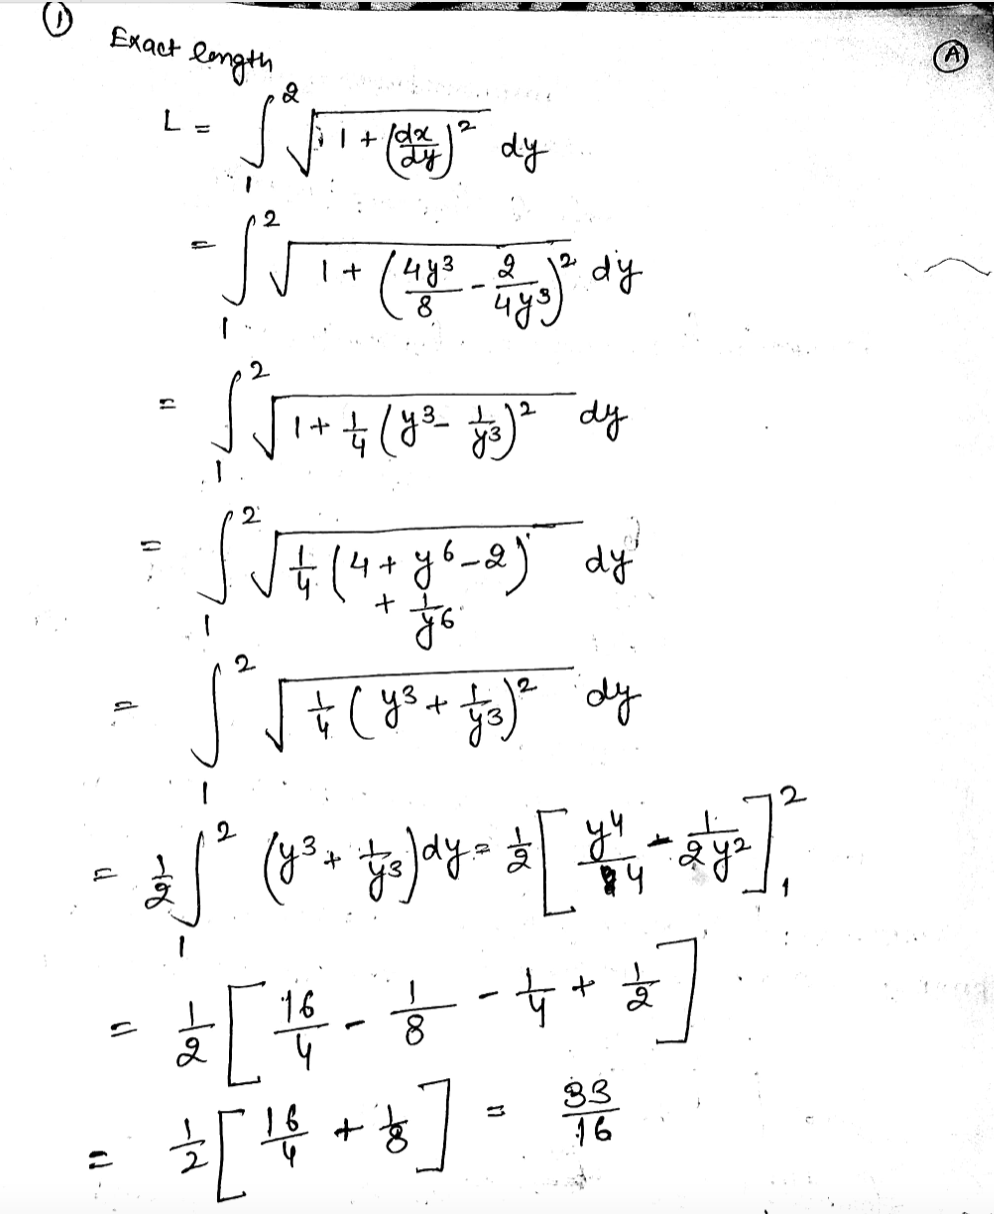 ①
Ⓐ
Exact length
L = ∫₁² √(1 + (dx/dy)²) dy
= ∫₁² √(1 + (4y³/8 - 2/4y³)²) dy
= ∫₁² √(1 + 1/4 (y³ - 1/y³)²) dy
= ∫₁² √(1/4 (4 + y⁶ - 2 + 1/y⁶)) dy
= ∫₁² √(1/4 (y³ + 1/y³)²) dy
= 1/2 ∫₁² (y³ + 1/y³) dy = 1/2 [y⁴/4 - 1/2y²]₁²
= 1/2 [16/4 - 1/8 - 1/4 + 1/2]
= 1/2 [16/4 + 1/8] = 33/16